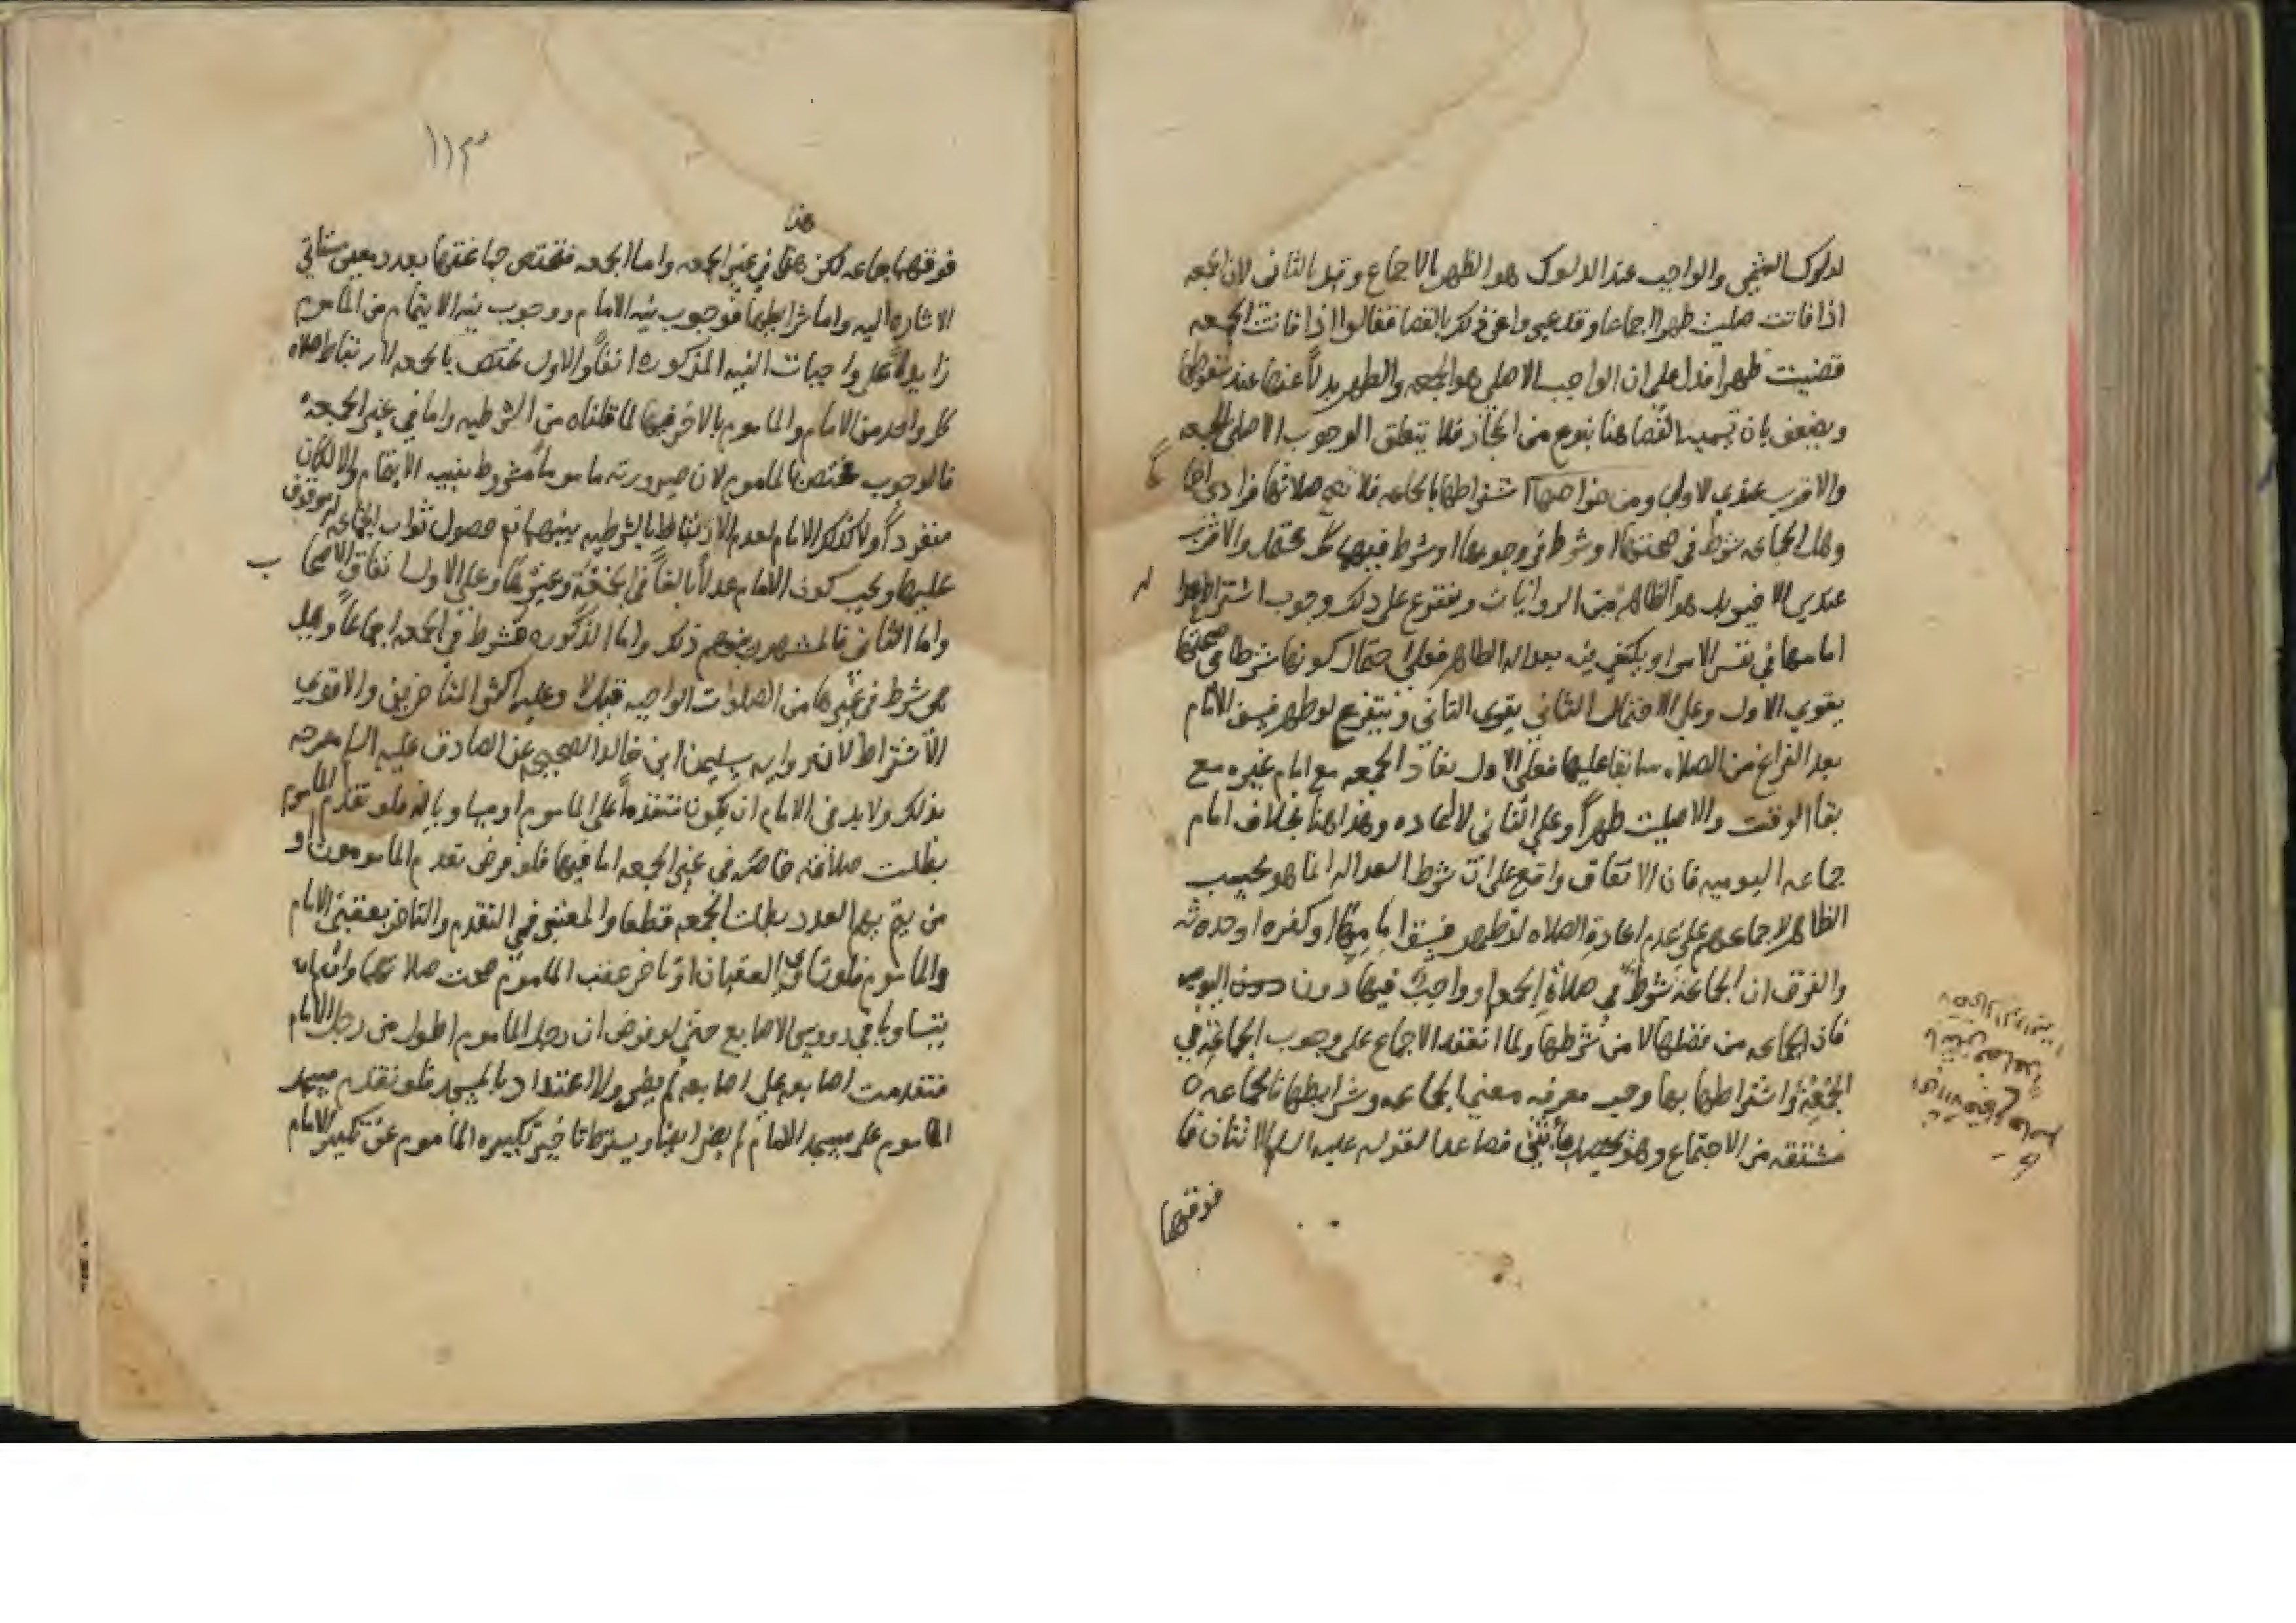 لدلوك الشمس والواجب عند الدلوك هو الظهر بالاجماع وقيل بالثاني لان الجمعه
اذا فاتت صليت ظهرا اجماعا وقد عبروا عن ذلك بالقضا فقالوا اذا فاتت الجمعه
قضيت ظهرا فدل على ان الواجب الاصلي هو الجمعه والظهر بدلاً عنها عند فواتها
ويضعف بان تسميه القضا هنا بنوع من المجاز فلا يتعلق الوجوب الاصلي بالجمعه
والاقرب عندي الاولى ومن خواصها اشتراطها بالجماعه فلا تصح صلاتها فرادى اجما
وهل الجماعه شرط في صحتها او شرط في وجوبها او شرط فيهما كل محتمل والاقرب
عندي الاخير بل هو الظاهر من الروايات ويتفرع على ذلك وجوب اشتراط
امامها في نفس الامر او يكتفي فيه بعداله الظاهر فعلى احتمال كونها شرطا في صحتها
يقوى الاول وعلى الاحتمال الثاني يقوى الثاني ويتفرع لو ظهر فسق الامام
بعد الفراغ من الصلاه سابقا عليها فعلى الاول تعاد الجمعه مع امام غيره مع
بقا الوقت والا صليت ظهراً وعلى الثاني لا اعاده وهذا هنا بخلاف امام
جماعه اليوميه فان الاتفاق واقع على ان شرط العداله انما هو بحسب
الظاهر لاجماعهم على عدم اعادة الصلاه لو ظهر فسق امامها او كفره او حدثه
والفرق ان الجماعة شرط في صلاة الجمعه وواجبة فيها دون دون اليوميه
فان الجماعه من فضلها لا من شرطها ولما انعقد الاجماع على وجوب الجماعة في
الجمعة واشتراطها بها وجب معرفه معنى الجماعه وشرايطها فالجماعه
مشتقه من الاجتماع وهو يحصل باثنين فصاعدا لقوله عليه السلم الاثنان فا
فوقها
١١٣
هذا
فوقهما جماعه لكن هذا في غير الجمعه واما الجمعه فتختص جماعتها بعدد معين ستاتي
الاشاره اليه واما شرايطها فوجوب نيه الامام ووجوب نيه الايتمام من الماموم
زايداً على واجبات النيه المذكوره انفاً والاول مختص بالجمعه لارتباط صلاه
كل واحد من الامام والماموم بالاخر فيها لما قلناه من الشرطيه واما في غير الجمعه
فالوجوب مختص بالماموم لان صيرورته ماموماً مشروط بنيه الايتمام والا لكان
منفرداً ولا كذلك الامام لعدم الارتباط بالشرطيه بينهما نعم حصول ثواب الجماعه له موقوف
عليها ويجب كون الامام عدلاً بالغاً في الجمعة وغيرها وعلى الاول اتفاق الاصحا ب
واما الثاني فالمشهور بينهم ذلك واما الذكوره فشرط في الجمعه اجماعاً وهل
هي شرط في غيرها من الصلوات الواجبه قيل لا وعليه اكثر المتاخرين والاقوى
الاشتراط لان روايه سليمن ابن خالد الصحيحه عن الصادق عليه السلم مصرحه
بذلك ولابد في الامام ان يكون متقدماً على الماموم او مساويا له فلو تقدم الماموم
بطلت صلاته خاصة في غير الجمعه اما فيها فلو فرض تقدم المامومون او
من يتم بهم العدد بطلت الجمعه قطعا والمعتبر في التقدم والتاخر بعقبي الامام
والماموم فلو تساوى العقبان او تاخر عقب الماموم صحت صلاتهما وان لم
يتساويا في رووس الاصابع حتى لو فرض ان رجل الماموم اطول من رجل الامام
فتقدمت اصابعه على اصابعه لم يضر ولا اعتداد بالمسجد فلو تقدم مسجد
الماموم على مسجد الامام لم يضر ايضا ويشترط تاخير تكبيره الماموم عن تكبير الامام